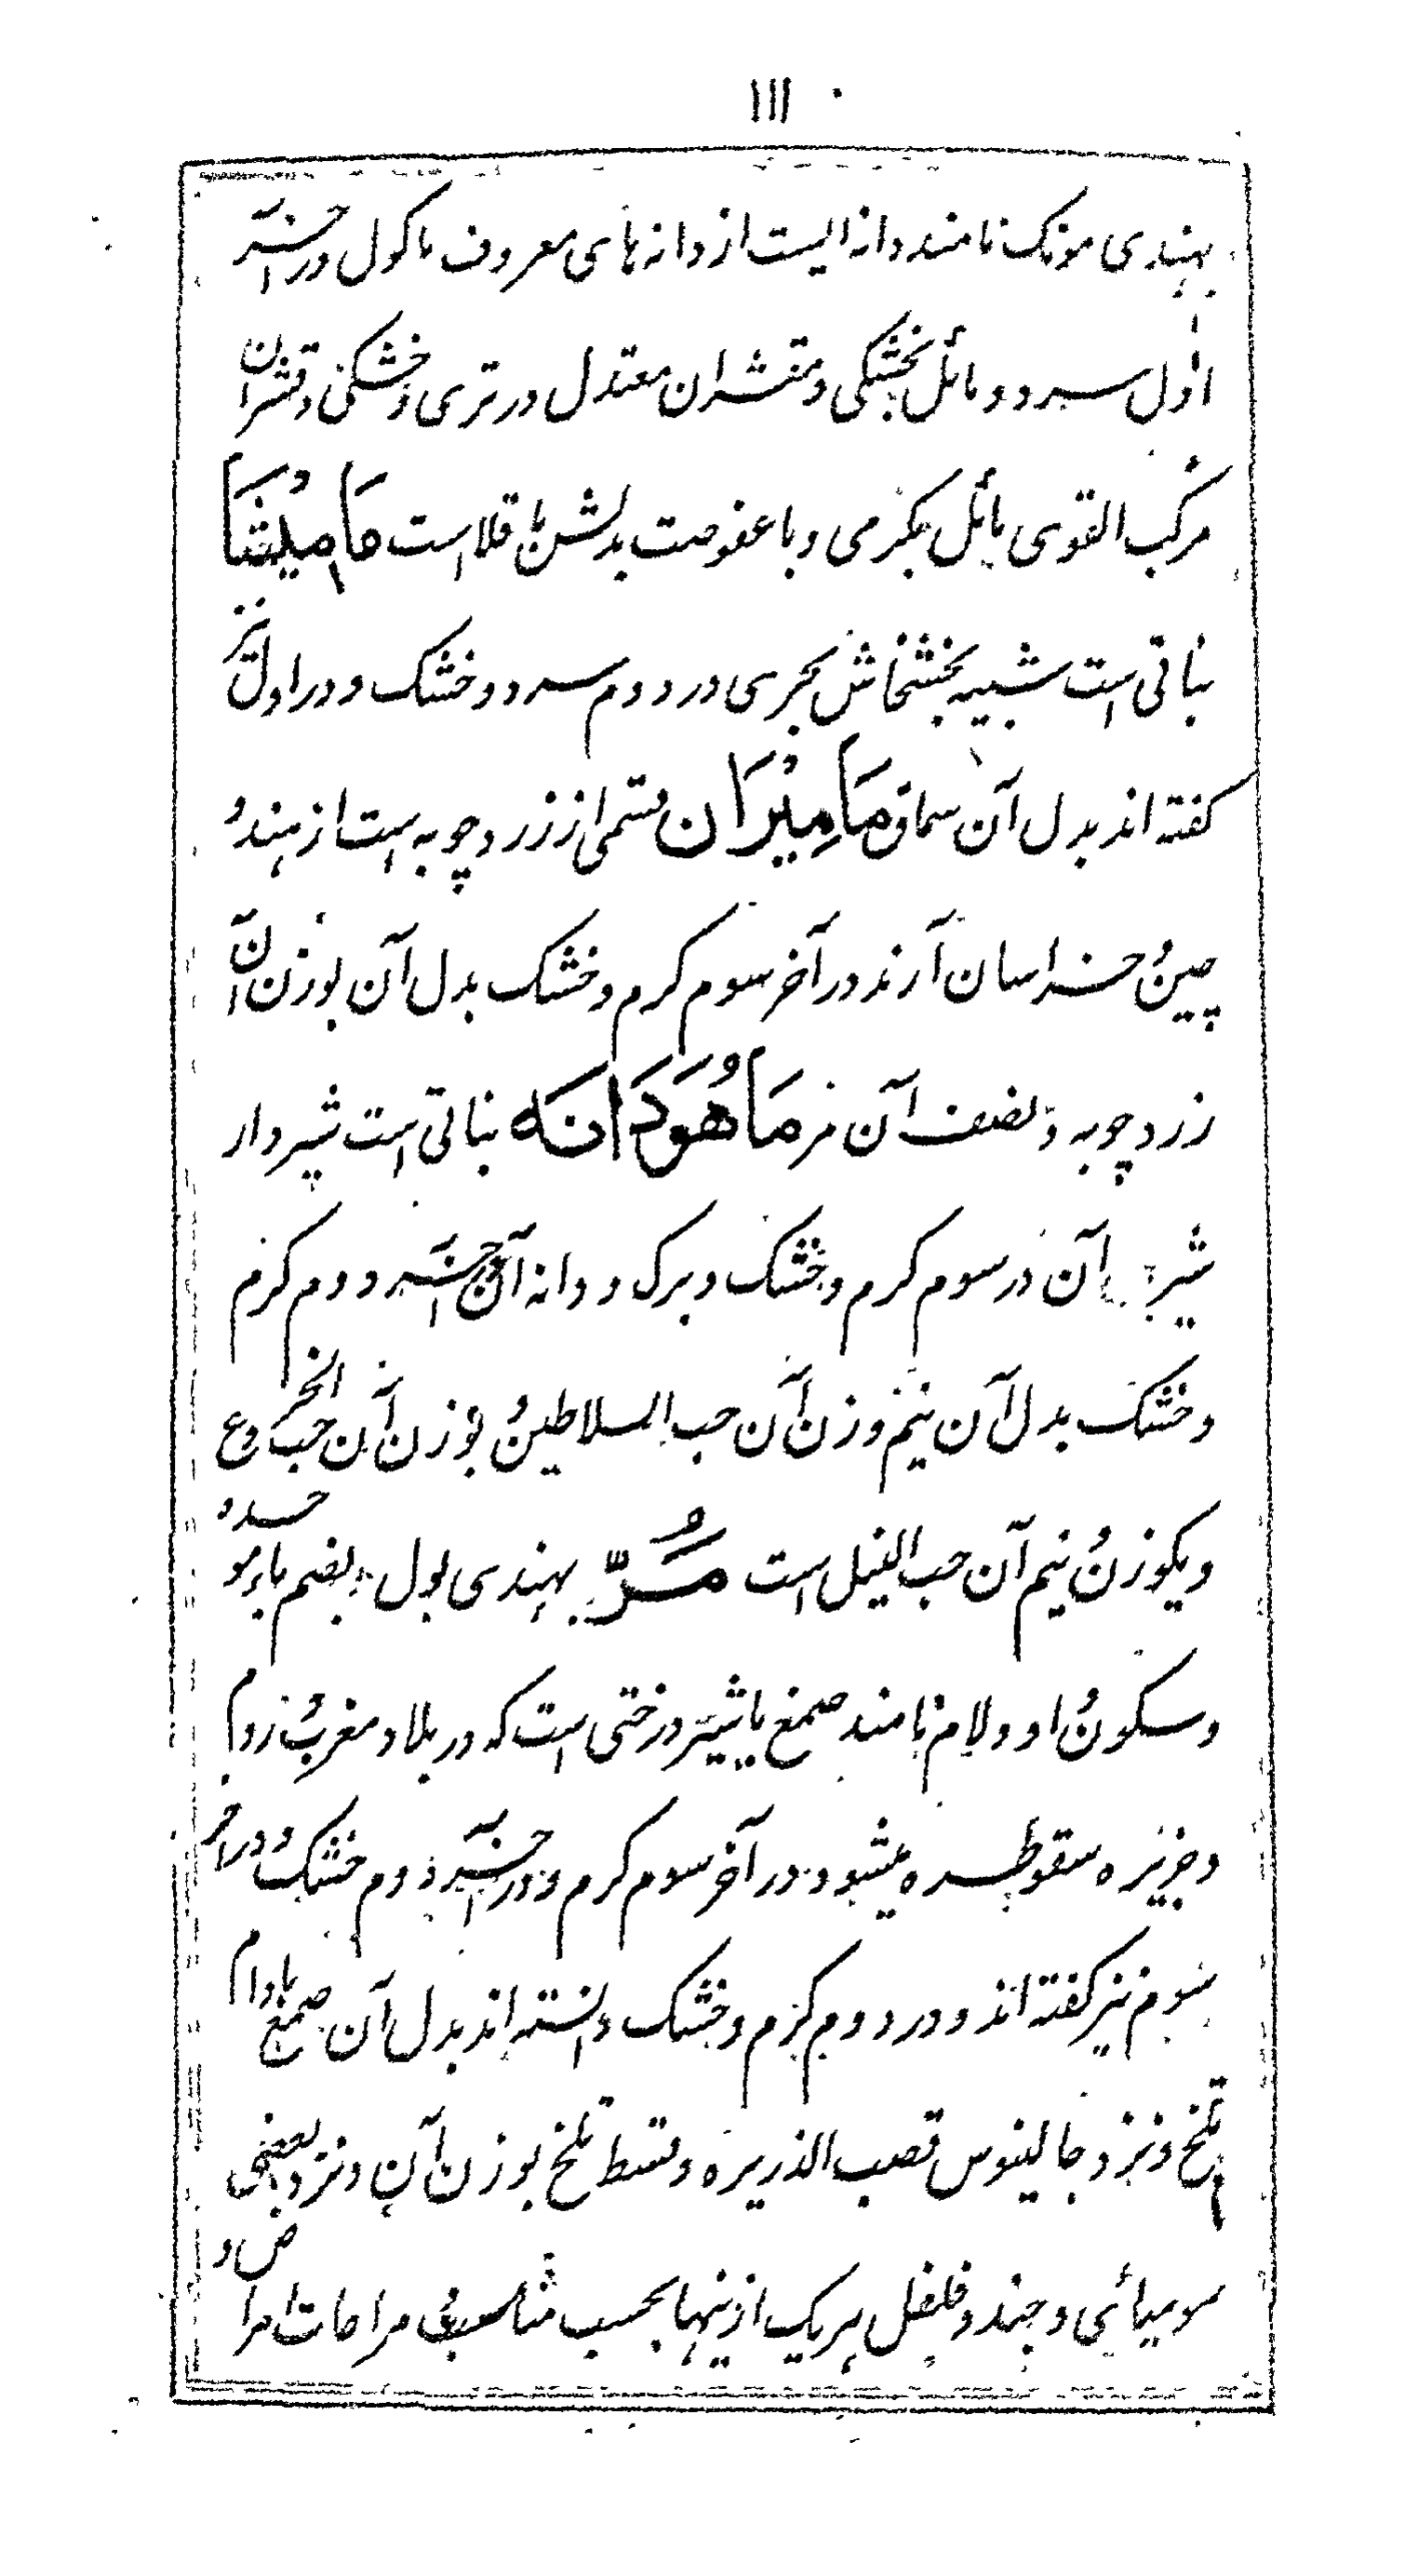 ۱۱۱
بهندی مونک نامند دانه ایست از دانه های معروف ماکول در آخر
اول سرد و مائل بخشکی و مقشر ان معتدل در تری و خشکی و قشر ان
مرکب القوی مائل بگرمی و با عفوصت بدلش باقلا است مامیثا
نباتی است شبیه بخشخاش بحری در دوم سرد و خشک و در اول نیز
گفته اند بدل آن سماق مامیران قسمی از زرد چوبه است از هند و
چین و خراسان آرند در آخر سوم گرم و خشک بدل آن بوزن آن
زرد چوبه و نصف آن مر ماهودانه نباتی است شیردار
شیر آن در سوم گرم و خشک و برگ و دانه آن در آخر دوم گرم
و خشک بدل آن نیم وزن آن حب السلاطین و بوزن آن حب الخروع
و یکوزن و نیم آن حب النیل است مرّ بهندی بول بضم باء موحده و
و سکون واو و لام نامند صمغ یا شیر درختی است که در بلاد مغرب و روم
و جزیره سقوطره میشود در آخر سوم گرم و در آخر دوم خشک و در آخر
سوم نیز گفته اند و در دوم گرم و خشک دانسته اند بدل آن صمغ بادام
تلخ و نزد جالینوس قصب الذریره و قسط تلخ بوزن آن و نزد بعضی
مومیائی و جند و فلفل هریک ازینها بحسب مناسبت و مراعات امراض و